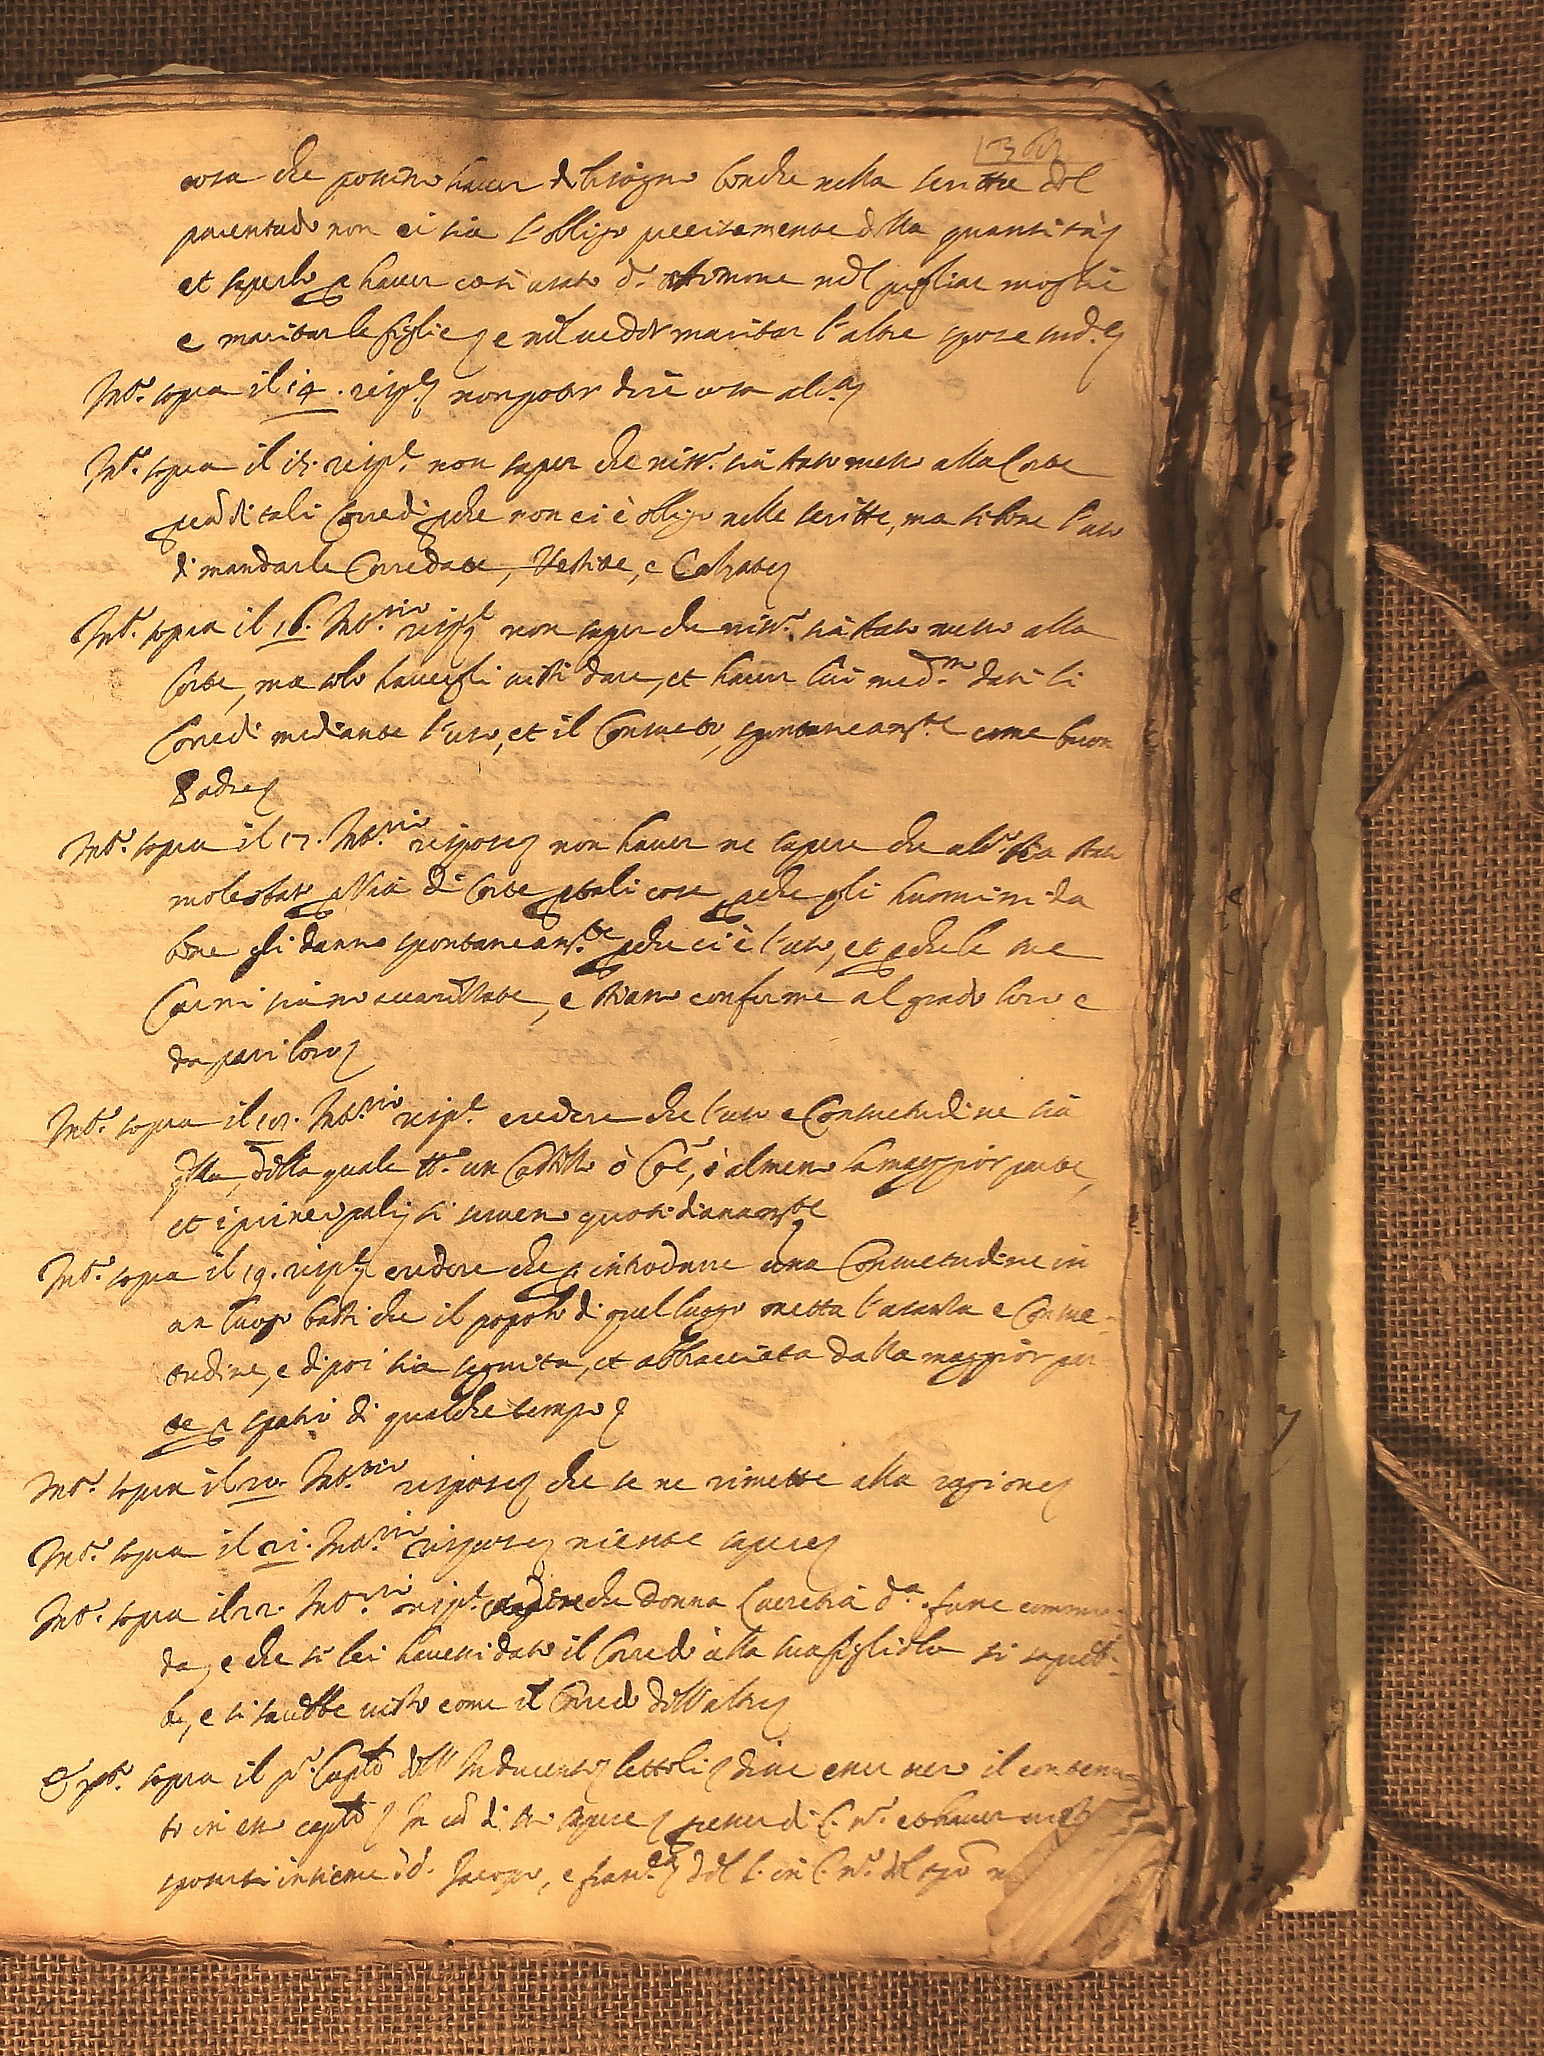 cosa che possino haver di bisogno benche nella scritta del
parentado non ci sia l'obligo precisamente della quantità
et saperlo p haver così usato d.o nel pigliar moglie
e maritar le figlie e nel veder maritar l'altre spose
Int.o sopra il 14. risp.e non poter dire cosa alc.a
Int.o sopra il 15. risp.e non saper che niss.o sia stato messo alla Corte
di tali Corredi pche non ci è obligo nelle scritte, ma si bene l'uso
di mandarle Corredate, Vestite, e Calzate
Int.o sopra il 16. Int.rio risp.e non saper che niss.o sia stato messo alla
Corte, ma solo havergli visti dare, et haver lui med.mo dati li
Corredi mediante l'uso, et il Consueto, spontaneam.te come buon
Padre
Int.o sopra il 17. Int.rio rispose non haver ne sapere che alc.o sia stato
molestato p Via di Corte p tali cose pche gli huomini da
bene gli danno spontaneam.te pche ci è l'uso, et pche le sue
Carni siano accarezzate, e stiano conforme al grado loro e
da pari loro
Int.o sopra il 18. Int.rio risp.e credere che l'uso e Consuetudine sia
qlla, della quale tt.o un Castello ò Coē, ò almeno la maggior parte,
et i principali si servono quotidianam.te
Int.o sopra il 19. risp.e credere che p introdurre una Consuetudine in
un luogo basti che il popolo di quel luogo metta l'usanza e Consue-
tudine, e di poi sia seguita, et abbracciata dalla maggior par
te p spatio di qualche tempo
Int.o sopra il 20. Int.rio rispose che se ne rimette alla ragione
Int.o sopra il 21. Int.rio rispose niente sapere
Int.o sopra il 22. Int.rio risp.e credere che donna Lucretia d.a fusse
da, e che se lei havessi dato il Corredo alla sua figliola si sapreb-
be, e si sarebbe visto come il Corredo dell'altre
sopra il p.o Capto dell' lettoli disse esser vero il contenu
to in esso capto In cā di sapere
insieme d. Jacopo, e fran.co del